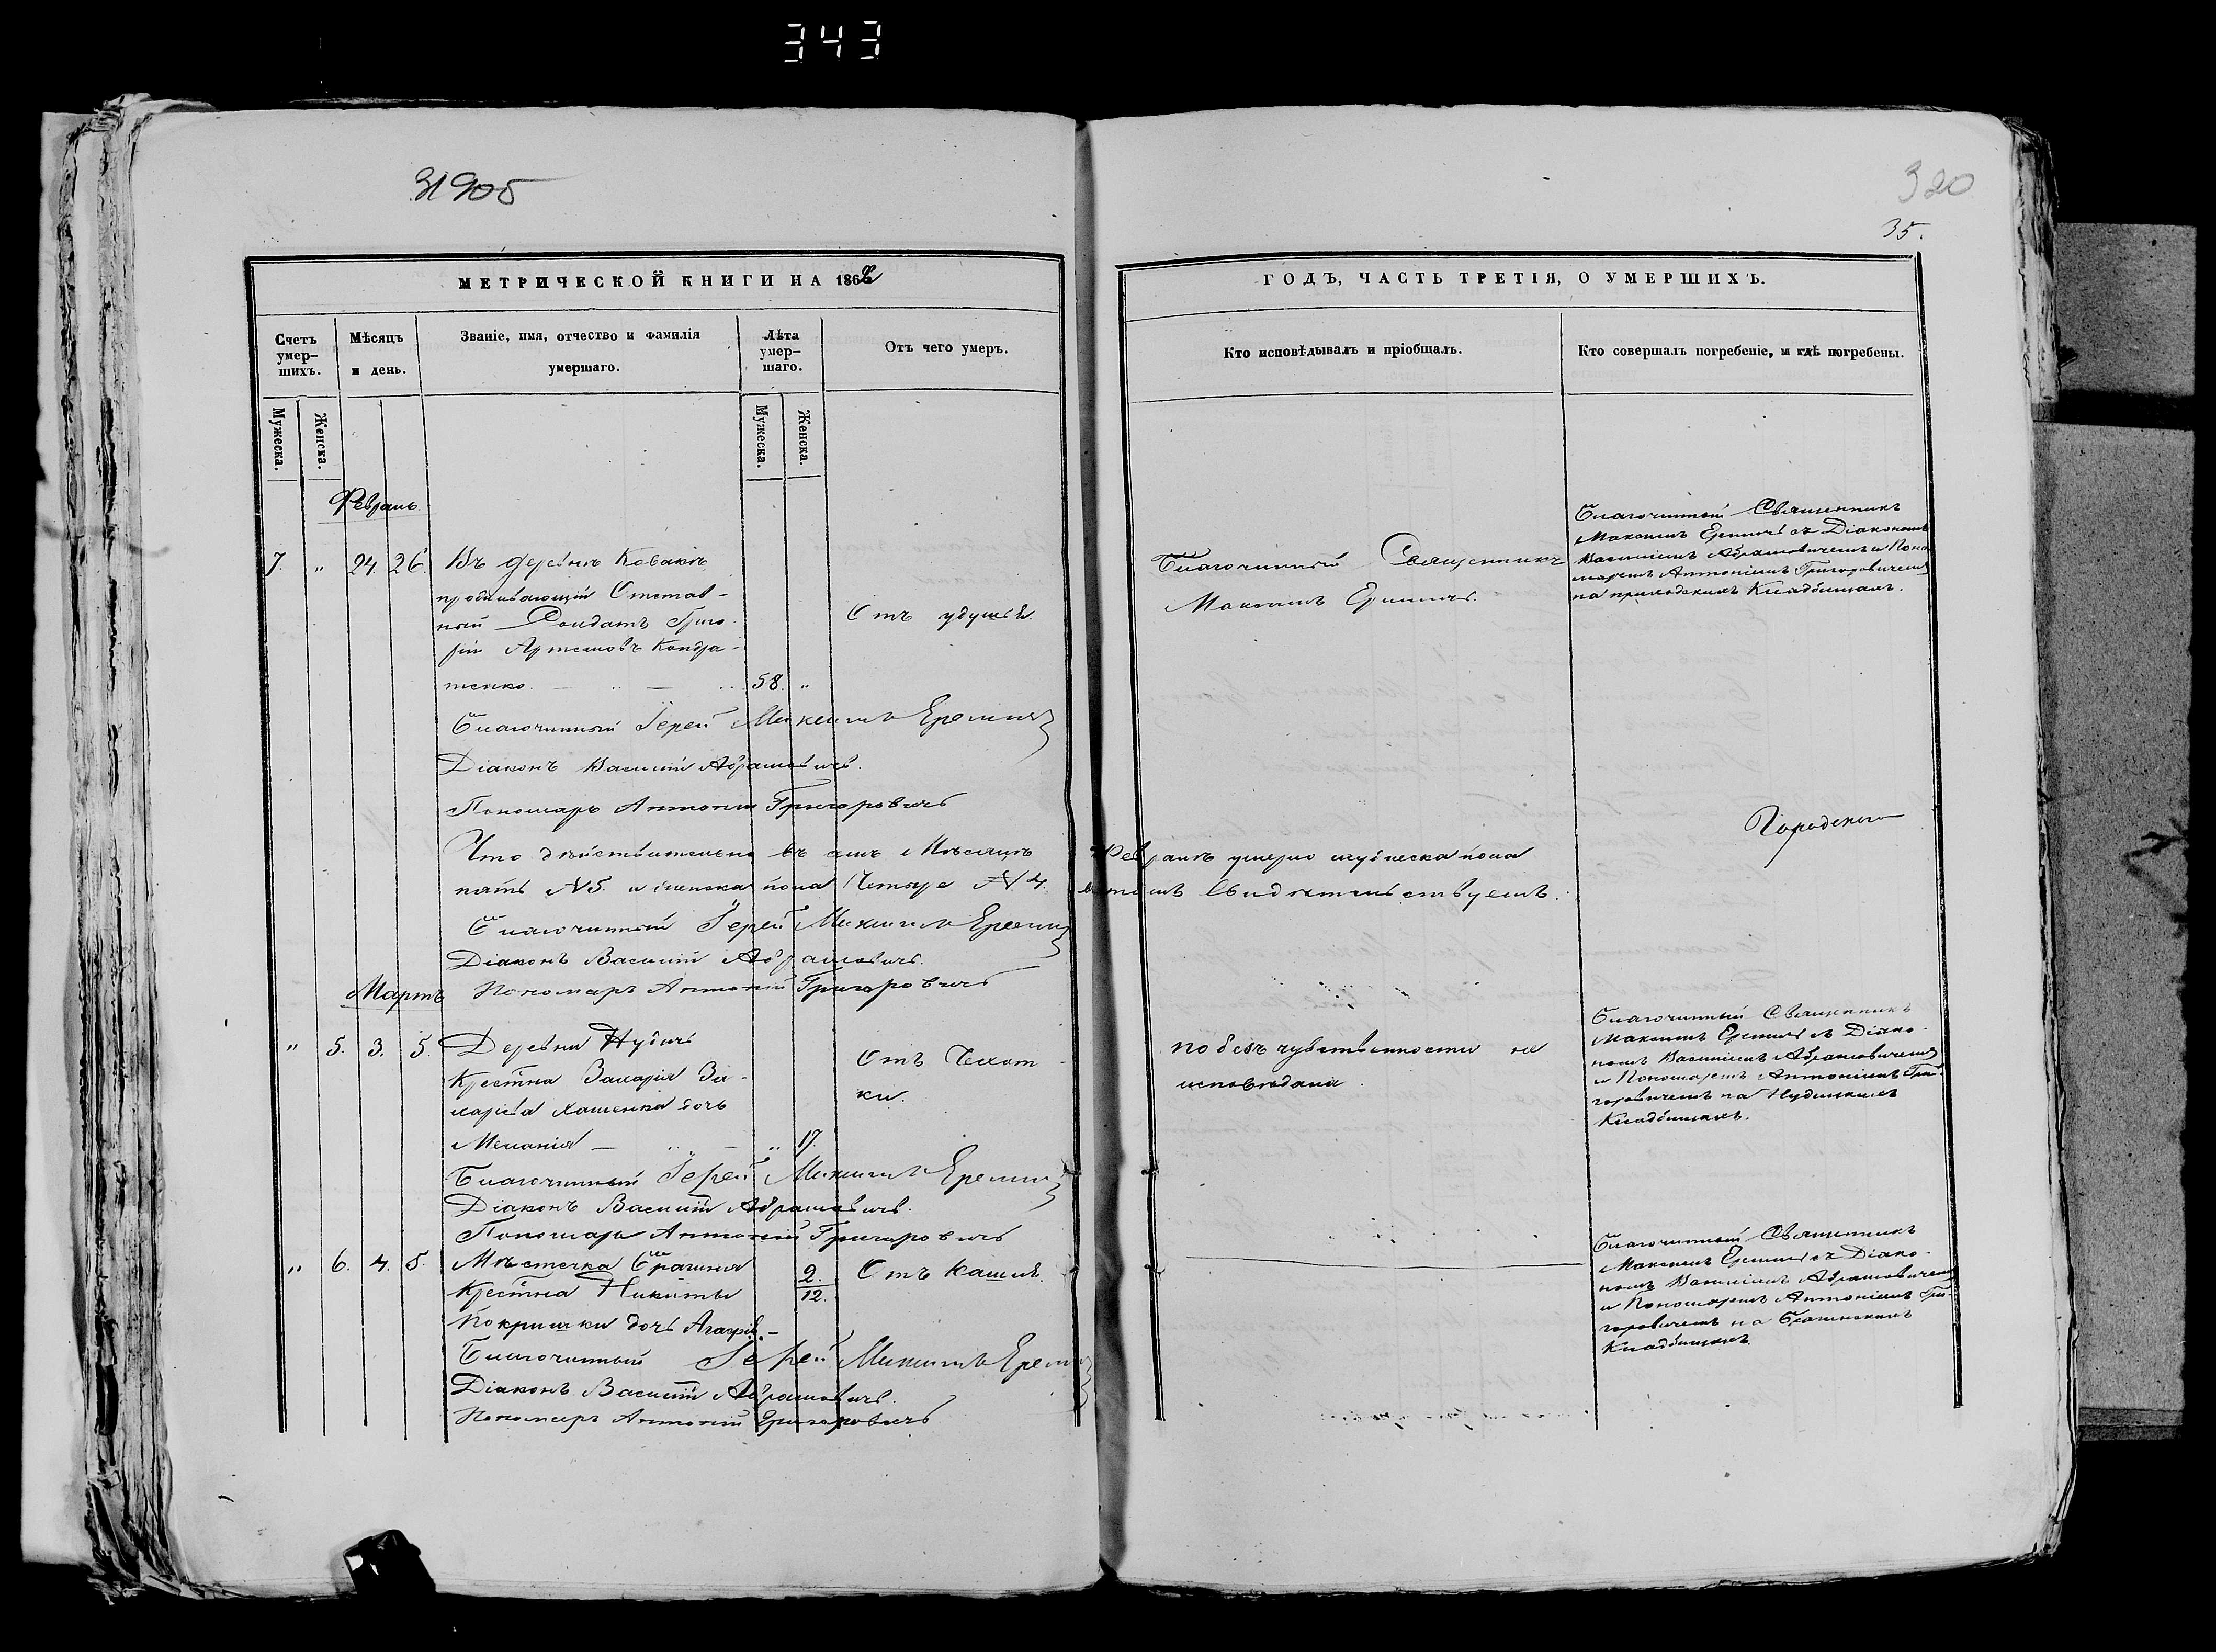 343
31905
320
35.
МЕТРИЧЕСКОЙ КНИГИ НА 1862
ГОДЪ, ЧАСТЬ ТРЕТІЯ, О УМЕРШИХЪ.
Счетъ умер-
шихъ.
Мѣсяцъ
и день.
Званіе, имя, отчество и фамилія
умершаго.
Лѣта
умер-
шаго.
Отъ чего умеръ.
Кто исповѣдывалъ и пріобщалъ.
Кто совершалъ погребеніе, и гдѣ погребены.
Мужеска.
Женска.
Мужеска.
Женска.
Февраль.
7. " 24. 26. Въ деревнѣ
проживающій Отстав-
ный Солдатъ Григо-
рій Артемовъ Кондра-
тенко. 58. "
Отъ удушья.
Благочинный Священникъ
Максимъ
Благочинный Священникъ
Максимъ съ Діакономъ
Василіемъ Абрамовичемъ и Поно-
маремъ Антоніемъ Григоровичемъ
на приходскихъ Кладбищахъ.
Благочинный Іерей Максимъ
Діаконъ Василій Абрамовичъ.
Пономарь Антоній Григоровичъ
Что дѣйствительно въ семъ Мѣсяцѣ Февралѣ умерло мужеска пола
пять №5. и женска пола Четыре №4. въ томъ свидѣтельствуемъ.
Благочинный Іерей Максимъ
Діаконъ Василій Абрамовичъ.
Пономарь Антоній Григоровичъ
Мартъ
" 5. 3. 5. Деревни
Крестна Захарія За-
харіева дочь
Меланія " 17.
Отъ Чехот-
ки.
по безчувственности не
исповѣдана.
Благочинный Священникъ
Максимъ съ Діако-
номъ Василіемъ Абрамовичемъ
и Пономаремъ Антоніемъ Гри-
горовичемъ на
Кладбищахъ.
Благочинный Іерей Максимъ
Діаконъ Василій Абрамовичъ.
Пономарь Антоній Григоровичъ
" 6. 4. 5. Мѣстечка Брагиня
Крестна Никиты
дочь
2/12.
Отъ Кашля.
Благочинный Священникъ
Максимъ съ Діако-
номъ Василіемъ Абрамовичемъ
и Пономаремъ Антоніемъ Гри-
горовичемъ на Брагинскихъ
Кладбищахъ.
Благочинный Іерей Максимъ
Діаконъ Василій Абрамовичъ.
Пономарь Антоній Григоровичъ